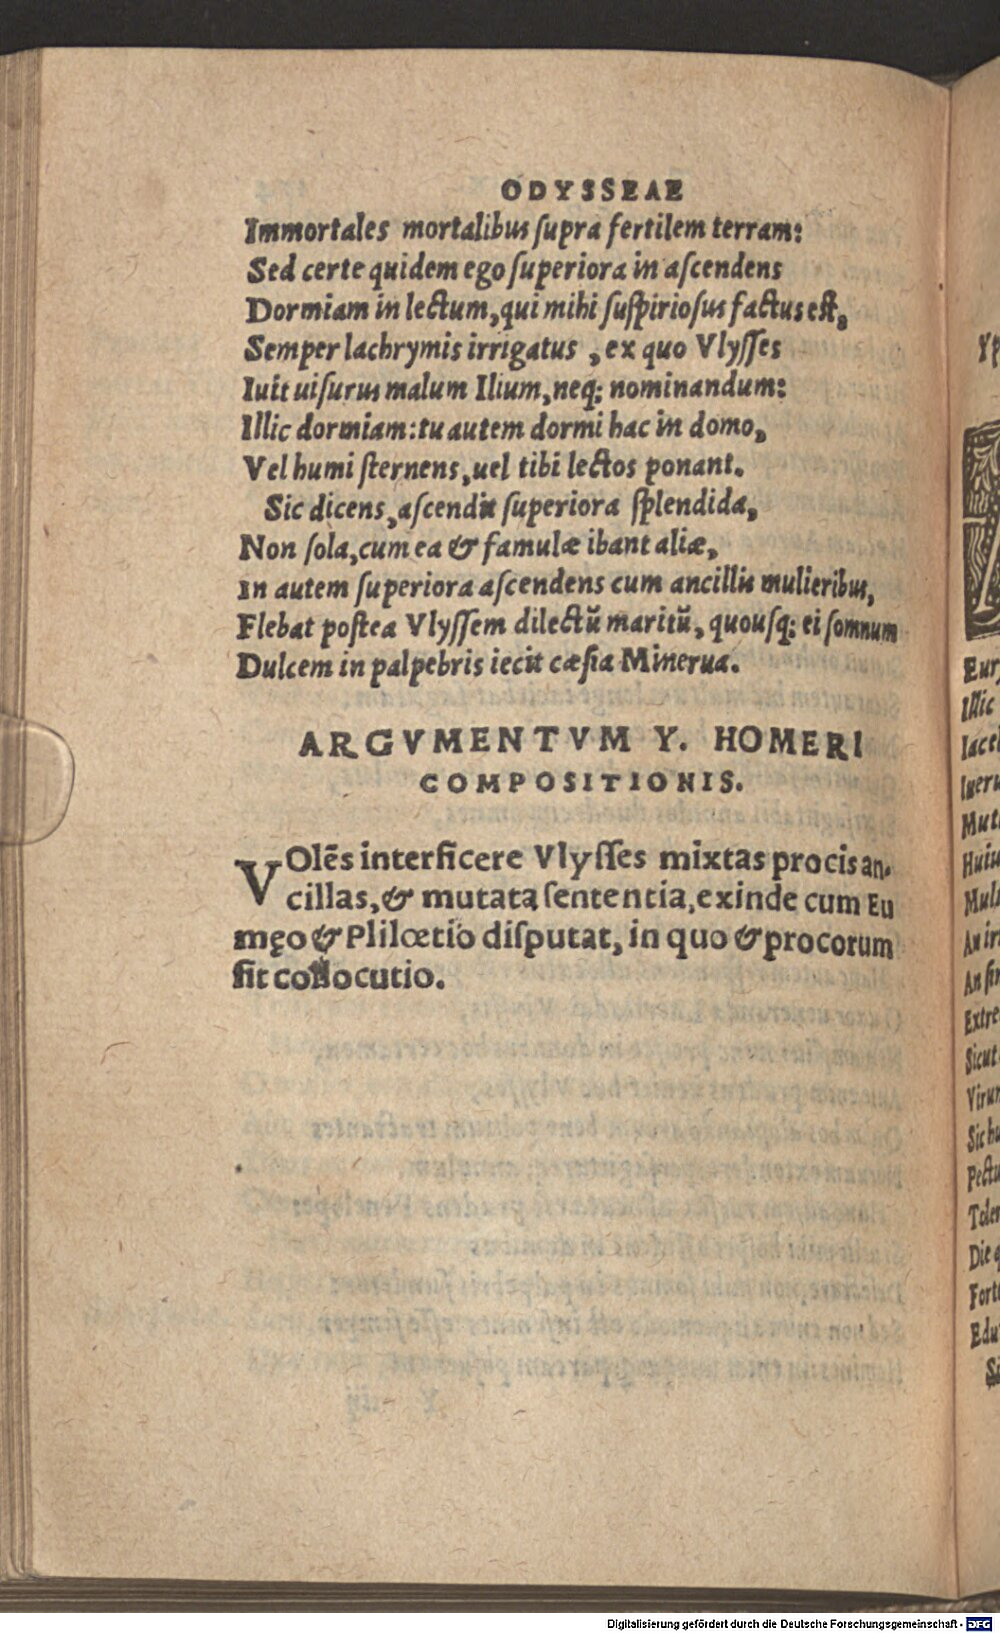 ODYSSEAE
Immortales mortalibus ſupra fertilem terram:
Sed certe quidem ego ſuperiora in aſcendens
Dormiam in lectum, qui mihi ſuſpirioſus factus eſt,
Semper lachrymis irrigatus , ex quo Vlyſſes
Iuit uiſurus malum Ilium, neq; nominandum:
Illic dormiam: tu autem dormi hac in domo,
Vel humi ſternens, uel tibi lectos ponant.
Sic dicens, aſcendit ſuperiora ſplendida,
Non ſola, cum ea & famulæ ibant aliæ,
In autem ſuperiora aſcendens cum ancillis mulieribus,
Flebat poſtea Vlyſſem dilectũ maritũ, quouſq; ei ſomnum
Dulcem in palpebris iecit cæſia Minerua.
ARGVMENTVM Y. HOMERI
COMPOSITIONIS.
VOlẽs interficere Vlyſſes mixtas procis an-
cillas, & mutata ſententia, exinde cum Eu
męo & Pliloetio diſputat, in quo & procorum
fit collocutio.
Yp
Eury
Illic
Iacet
Ineru
Mut
Huiu
Mul
An ir
An ſin
Extre
Sicut
Virun
Sic hu
Pectu
Toler
Die q
Forte
Edu
Si
Digitalisierung gefördert durch die Deutsche Forschungsgemeinschaft - DFG